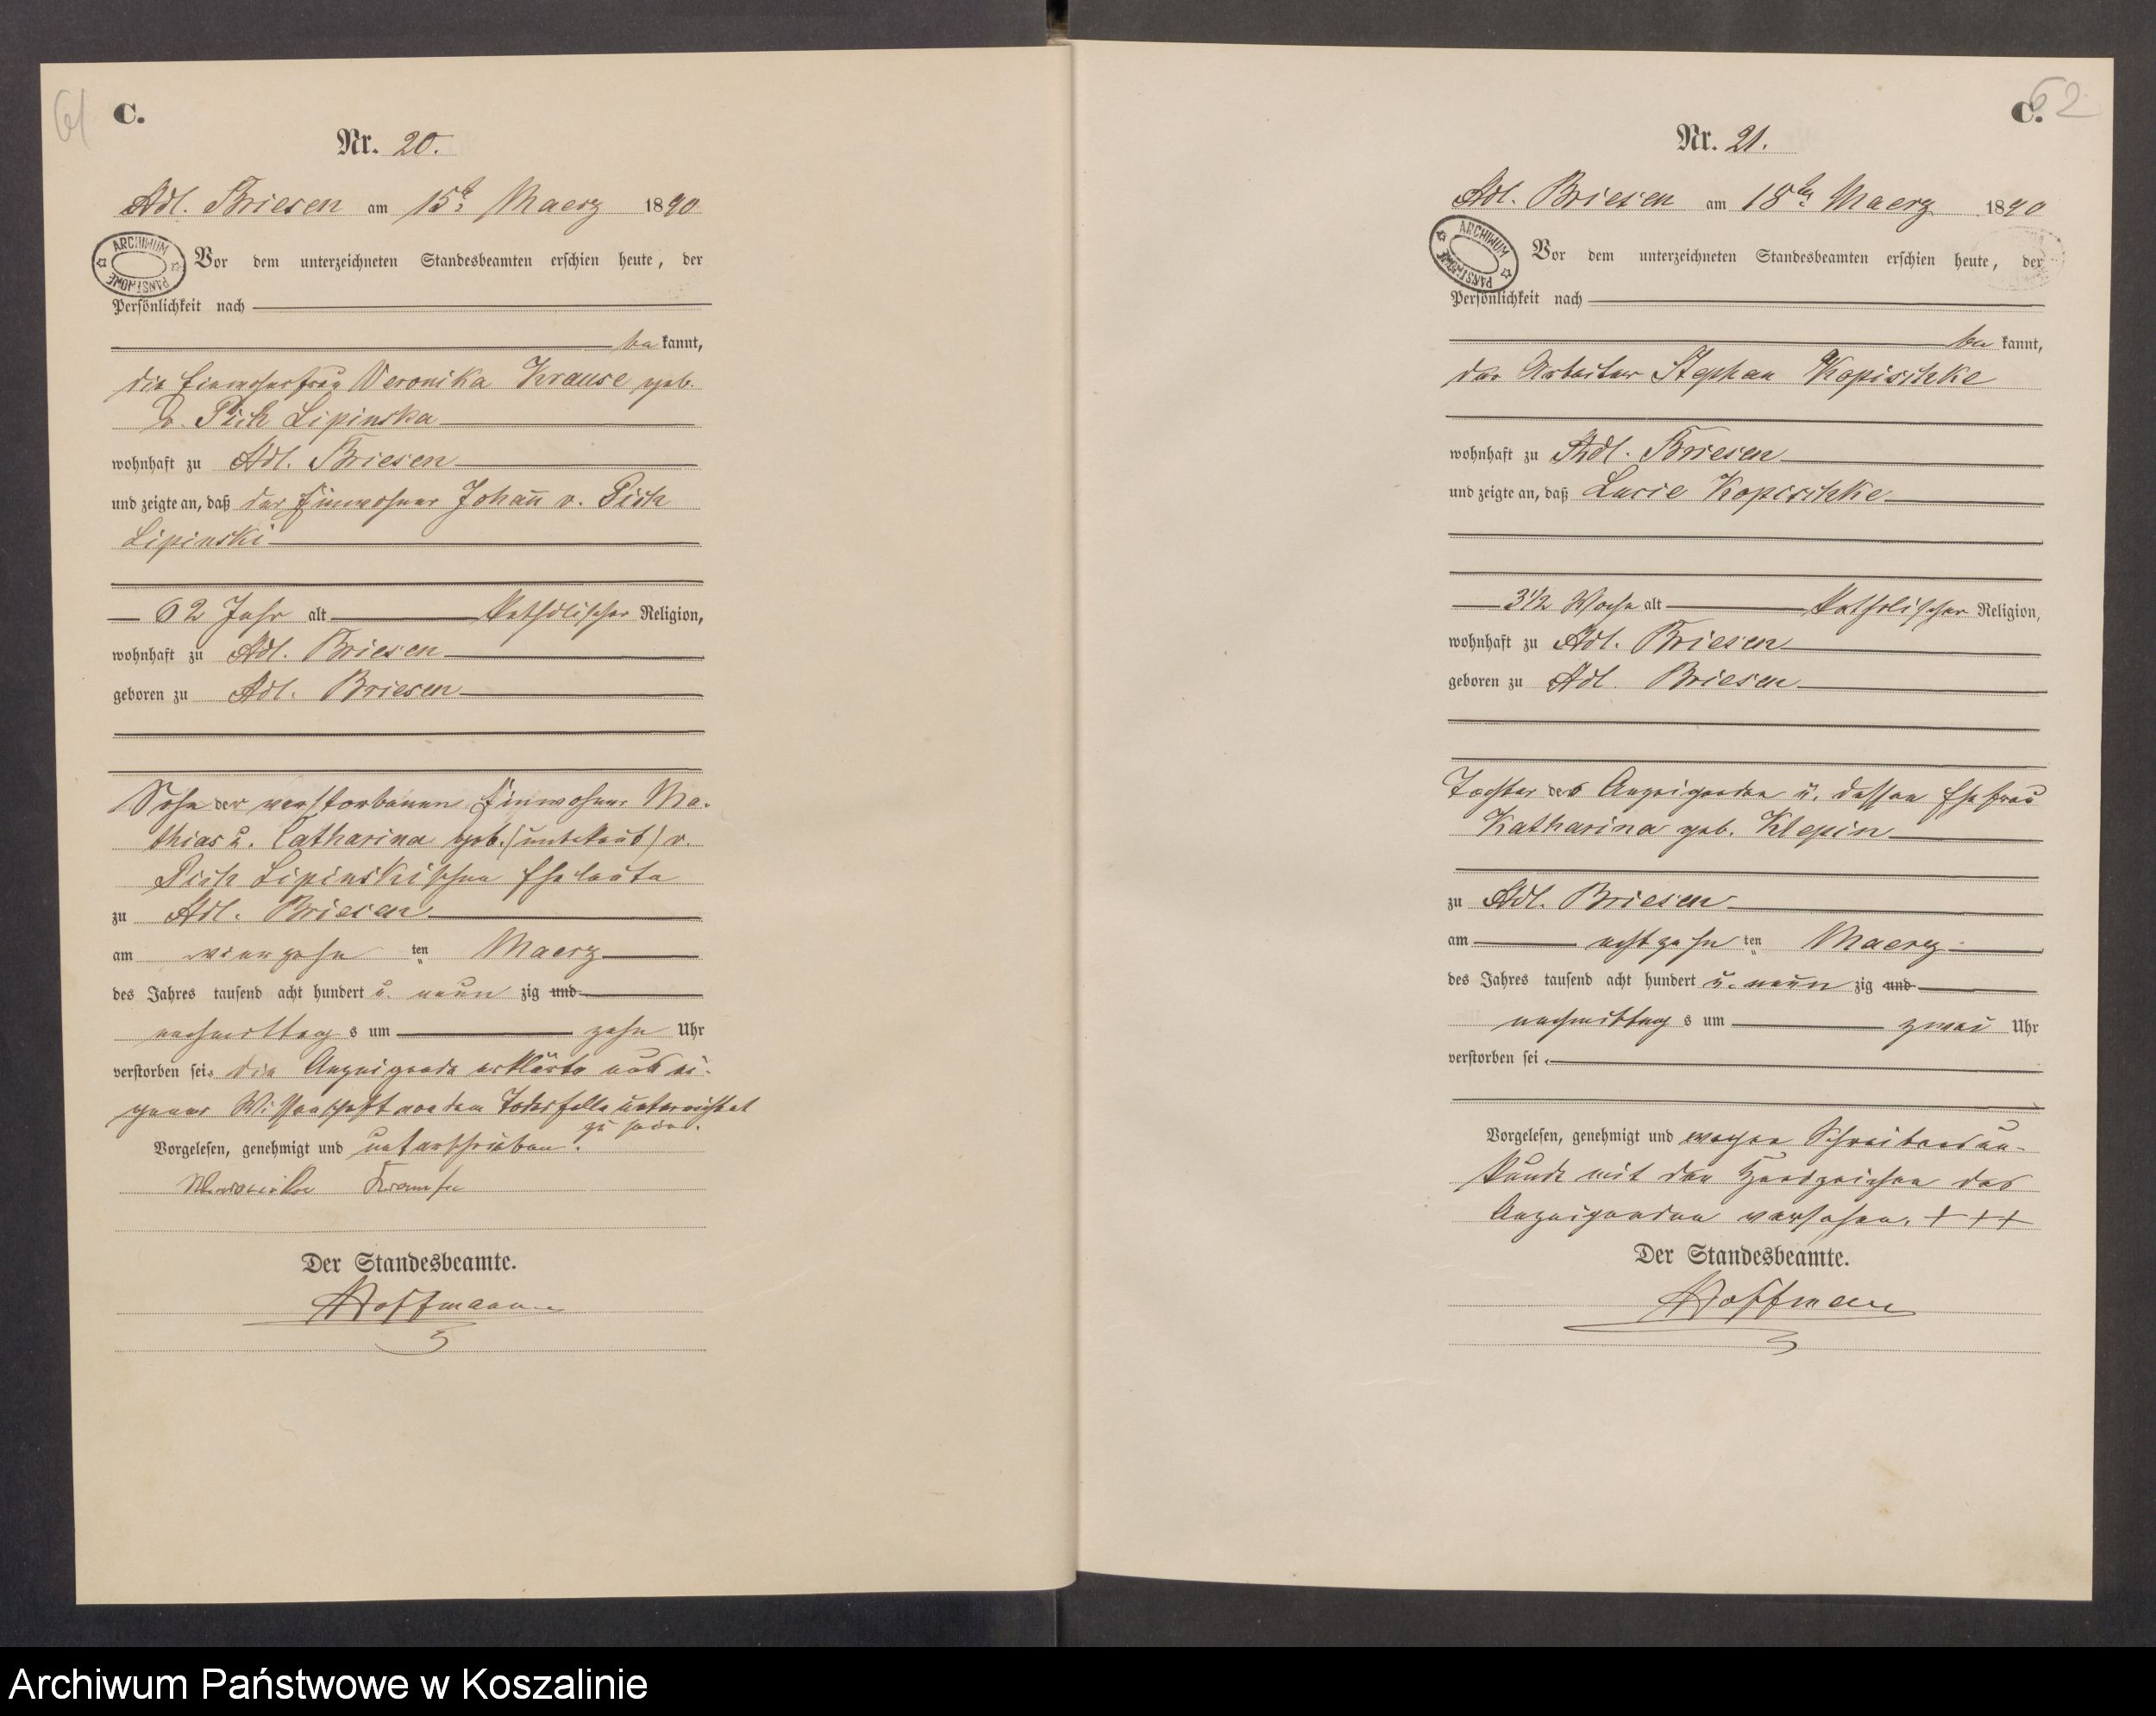 61
C.
Nr. 20.
Adl. Briesen am 15t. Maerz 1890
ARCHIWUM PAŃSTWOWE
Vor dem unterzeichneten Standesbeamten erschien heute, der
Persönlichkeit nach
be kannt,
die Einwohnerfrau Veronika Krause geb.
v. Pich Lipinska
wohnhaft zu Adl. Briesen
und zeigte an, daß der Einwohner Johañ v. Pich
Lipinski
62 Jahr alt katholischer Religion,
wohnhaft zu Adl. Briesen
geboren zu Adl. Briesen
Sohn der verstorbenen Einwohner Ma-
thias u. Catharina geb. (unbekant) v.
Pich Lipinskischen Eheleute
zu Adl. Briesen
am vierzehn ten Maerz
des Jahres tausend acht hundert u. neun zig und
nachmittag s um zehn Uhr
verstorben sei. die Anzeigende erklärte aus ei-
gener Wissenschaft von dem Todesfalle unterrichtet
zu sein.
Vorgelesen, genehmigt und unterschrieben.
Krause
Der Standesbeamte.
Hoffmann
62
C.
Nr. 21.
Adl. Briesen am 18ten Maerz 1890
ARCHIWUM PAŃSTWOWE
Vor dem unterzeichneten Standesbeamten erschien heute, der
Persönlichkeit nach
be kannt,
der Arbeiter Stephan Kopischke
wohnhaft zu Adl. Briesen
und zeigte an, daß Lucie Kopischke
3 1/2 Woche alt katholischer Religion,
wohnhaft zu Adl. Briesen
geboren zu Adl. Briesen
Tochter des Anzeigenden u. dessen Ehefrau
Katharina geb. Klepin
zu Adl. Briesen
am achtzehn ten Maerz
des Jahres tausend acht hundert u. neun zig und
nachmittag s um zwei Uhr
verstorben sei.
Vorgelesen, genehmigt und wegen Schreibensun-
kunde mit den Handzeichen des
Anzeigenden versehen. + + +
Der Standesbeamte.
Hoffmann
Archiwum Państwowe w Koszalinie